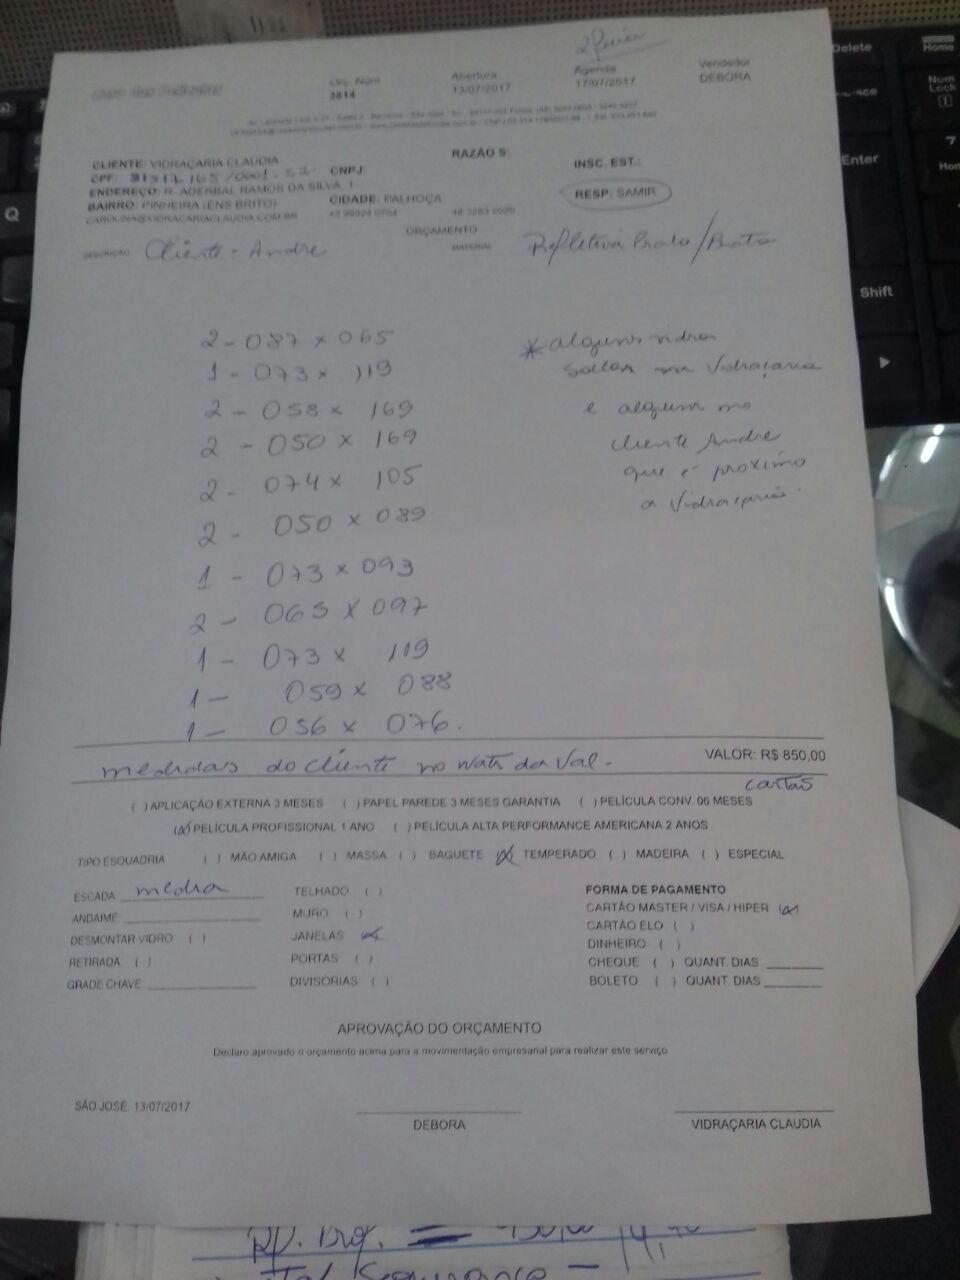 Orç. Num
3814
Abertura
13/07/2017
Agenda
17/07/2017
Vendedor
DEBORA
CLIENTE: VIDRAÇARIA CLAUDIA
RAZÃO S:
CPF: /0001-52 CNPJ:
INSC. EST.:
ENDEREÇO: R. ADERBAL RAMOS DA SILVA, 1
BAIRRO: PINHEIRA (ENS BRITO) CIDADE: PALHOÇA
RESP: SAMIR
CAROLINA@VIDRACARIACLAUDIA.COM.BR 48 99924 0704 48 3283 2020
ORÇAMENTO
DESCRIÇÃO Cliente - Andre MATERIAL Refletiva Prata/Prata
2 - 087 x 065
1 - 073 x 119
2 - 058 x 169
2 - 050 x 169
2 - 074 x 105
2 - 050 x 089
1 - 073 x 093
2 - 065 x 097
1 - 073 x 119
1 - 059 x 088
1 - 056 x 076.
* alguns vidros
soltos na Vidraçaria
e alguns no
cliente Andre
que é proximo
a Vidraçaria.
medidas do cliente no Wats da Val.
VALOR: R$ 850,00
cartão
( ) APLICAÇÃO EXTERNA 3 MESES ( ) PAPEL PAREDE 3 MESES GARANTIA ( ) PELÍCULA CONV. 06 MESES
(x) PELÍCULA PROFISSIONAL 1 ANO ( ) PELÍCULA ALTA PERFORMANCE AMERICANA 2 ANOS
TIPO ESQUADRIA ( ) MÃO AMIGA ( ) MASSA ( ) BAGUETE (x) TEMPERADO ( ) MADEIRA ( ) ESPECIAL
ESCADA media
ANDAIME
DESMONTAR VIDRO ( )
RETIRADA ( )
GRADE CHAVE
TELHADO ( )
MURO ( )
JANELAS (x)
PORTAS ( )
DIVISÓRIAS ( )
FORMA DE PAGAMENTO
CARTÃO MASTER / VISA / HIPER (x)
CARTÃO ELO ( )
DINHEIRO ( )
CHEQUE ( ) QUANT. DIAS
BOLETO ( ) QUANT. DIAS
APROVAÇÃO DO ORÇAMENTO
Declaro aprovado o orçamento acima para a movimentação empresarial para realizar este serviço
SÃO JOSÉ, 13/07/2017
DEBORA
VIDRAÇARIA CLAUDIA
Delete
Home
Num
Lock
Enter
Shift
Q